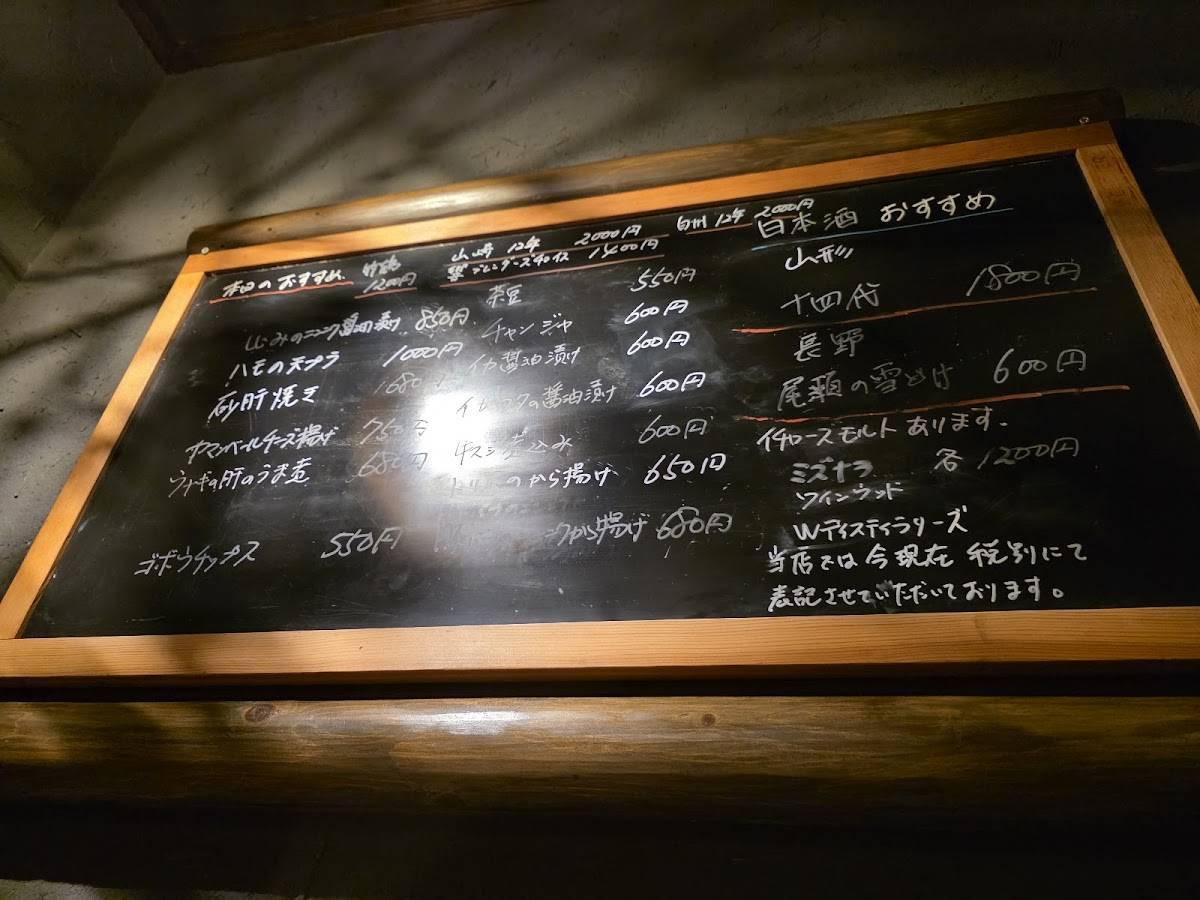 本日のおすすめ 竹鶴 1200円
山崎 12年 2000円 白州 12年 2000円
響 ブレンダーズチョイス 1400円
しじみのニンニク醤油漬け 850円
ハモの天プラ 1000円
砂肝焼き 680
カマンベールチーズ揚げ 750円
ウナギの肝のうま煮 680円
ゴボウチップス 550円
茶豆 550円
チャンジャ 600円
イカ醤油漬け 600円
の醤油漬け 600円
牛スジ煮込み 600円
のから揚げ 650円
から揚げ 680円
日本酒 おすすめ
山形
十四代 1800円
長野
尾瀬の雪どけ 600円
イチローズモルトあります.
ミズナラ 各 1200円
ワインウッド
Wディスティラリーズ
当店では今現在 税別にて
表記させていただいております。